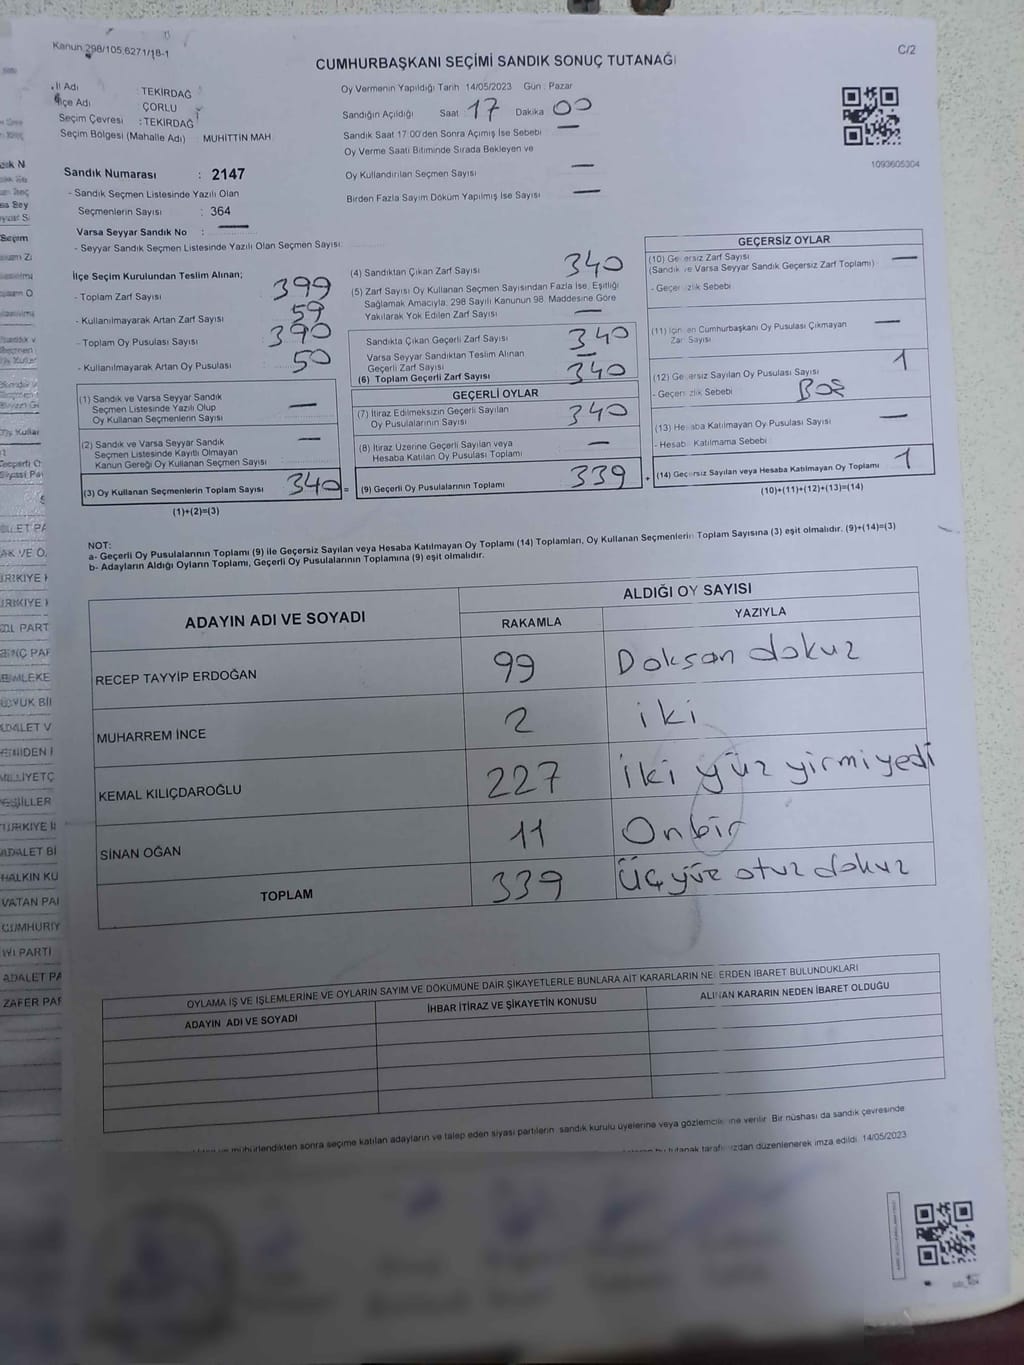 Kanun 298/105,6271/18-1
C/2
CUMHURBAŞKANI SEÇİMİ SANDIK SONUÇ TUTANAĞI
İl Adı : TEKİRDAĞ
İlçe Adı : ÇORLU
Seçim Çevresi : TEKİRDAĞ
Seçim Bölgesi (Mahalle Adı) : MUHİTTİN MAH.
Sandık Numarası : 2147
- Sandık Seçmen Listesinde Yazılı Olan
Seçmenlerin Sayısı : 364
Varsa Seyyar Sandık No : —
- Seyyar Sandık Seçmen Listesinde Yazılı Olan Seçmen Sayısı:
Oy Vermenin Yapıldığı Tarih 14/05/2023 Gün : Pazar
Sandığın Açıldığı Saat 17 Dakika 00
Sandık Saat 17:00'den Sonra Açımış İse Sebebi —
Oy Verme Saati Bitiminde Sırada Bekleyen ve
Oy Kullandırılan Seçmen Sayısı —
Birden Fazla Sayım Döküm Yapılmış İse Sayısı —
1093605304
İlçe Seçim Kurulundan Teslim Alınan;
- Toplam Zarf Sayısı 399
- Kullanılmayarak Artan Zarf Sayısı 59
- Toplam Oy Pusulası Sayısı 390
- Kullanılmayarak Artan Oy Pusulası 50
(1) Sandık ve Varsa Seyyar Sandık
Seçmen Listesinde Yazılı Olup
Oy Kullanan Seçmenlerin Sayısı —
(2) Sandık ve Varsa Seyyar Sandık
Seçmen Listesinde Kayıtlı Olmayan
Kanun Gereği Oy Kullanan Seçmen Sayısı —
(3) Oy Kullanan Seçmenlerin Toplam Sayısı 340 =
(1)+(2)=(3)
(4) Sandıktan Çıkan Zarf Sayısı 340
(5) Zarf Sayısı Oy Kullanan Seçmen Sayısından Fazla İse, Eşitliği
Sağlamak Amacıyla; 298 Sayılı Kanunun 98. Maddesine Göre
Yakılarak Yok Edilen Zarf Sayısı —
Sandıkta Çıkan Geçerli Zarf Sayısı 340
Varsa Seyyar Sandıktan Teslim Alınan
Geçerli Zarf Sayısı —
(6) Toplam Geçerli Zarf Sayısı 340
GEÇERLİ OYLAR
(7) İtiraz Edilmeksizin Geçerli Sayılan
Oy Pusulalarının Sayısı 340
(8) İtiraz Üzerine Geçerli Sayılan veya
Hesaba Katılan Oy Pusulası Toplamı —
(9) Geçerli Oy Pusulalarının Toplamı 339 +
GEÇERSİZ OYLAR
(10) Geçersiz Zarf Sayısı
(Sandık ve Varsa Seyyar Sandık Geçersiz Zarf Toplamı) —
- Geçersizlik Sebebi
(11) İçinden Cumhurbaşkanı Oy Pusulası Çıkmayan
Zarf Sayısı —
(12) Geçersiz Sayılan Oy Pusulası Sayısı 1
- Geçersizlik Sebebi Boş
(13) Hesaba Katılmayan Oy Pusulası Sayısı —
- Hesaba Katılmama Sebebi
(14) Geçersiz Sayılan veya Hesaba Katılmayan Oy Toplamı 1
(10)+(11)+(12)+(13)=(14)
NOT:
a- Geçerli Oy Pusulalarının Toplamı (9) ile Geçersiz Sayılan veya Hesaba Katılmayan Oy Toplamı (14) Toplamları, Oy Kullanan Seçmenlerin Toplam Sayısına (3) eşit olmalıdır. (9)+(14)=(3)
b- Adayların Aldığı Oyların Toplamı, Geçerli Oy Pusulalarının Toplamına (9) eşit olmalıdır.
ADAYIN ADI VE SOYADI
ALDIĞI OY SAYISI
RAKAMLA YAZIYLA
RECEP TAYYİP ERDOĞAN 99 Doksan dokuz
MUHARREM İNCE 2 iki
KEMAL KILIÇDAROĞLU 227 iki yüz yirmi yedi
SİNAN OĞAN 11 Onbir
TOPLAM 339 Üç yüz otuz dokuz
OYLAMA İŞ VE İŞLEMLERİNE VE OYLARIN SAYIM VE DÖKÜMÜNE DAİR ŞİKAYETLERLE BUNLARA AİT KARARLARIN NELERDEN İBARET BULUNDUKLARI
ADAYIN ADI VE SOYADI
İHBAR İTİRAZ VE ŞİKAYETİN KONUSU
ALINAN KARARIN NEDEN İBARET OLDUĞU
mühürlendikten sonra seçime katılan adayların ve talep eden siyasi partilerin sandık kurulu üyelerine veya gözlemcilerine verilir. Bir nüshası da sandık çevresinde
tutanak tarafımızdan düzenlenerek imza edildi. 14/05/2023